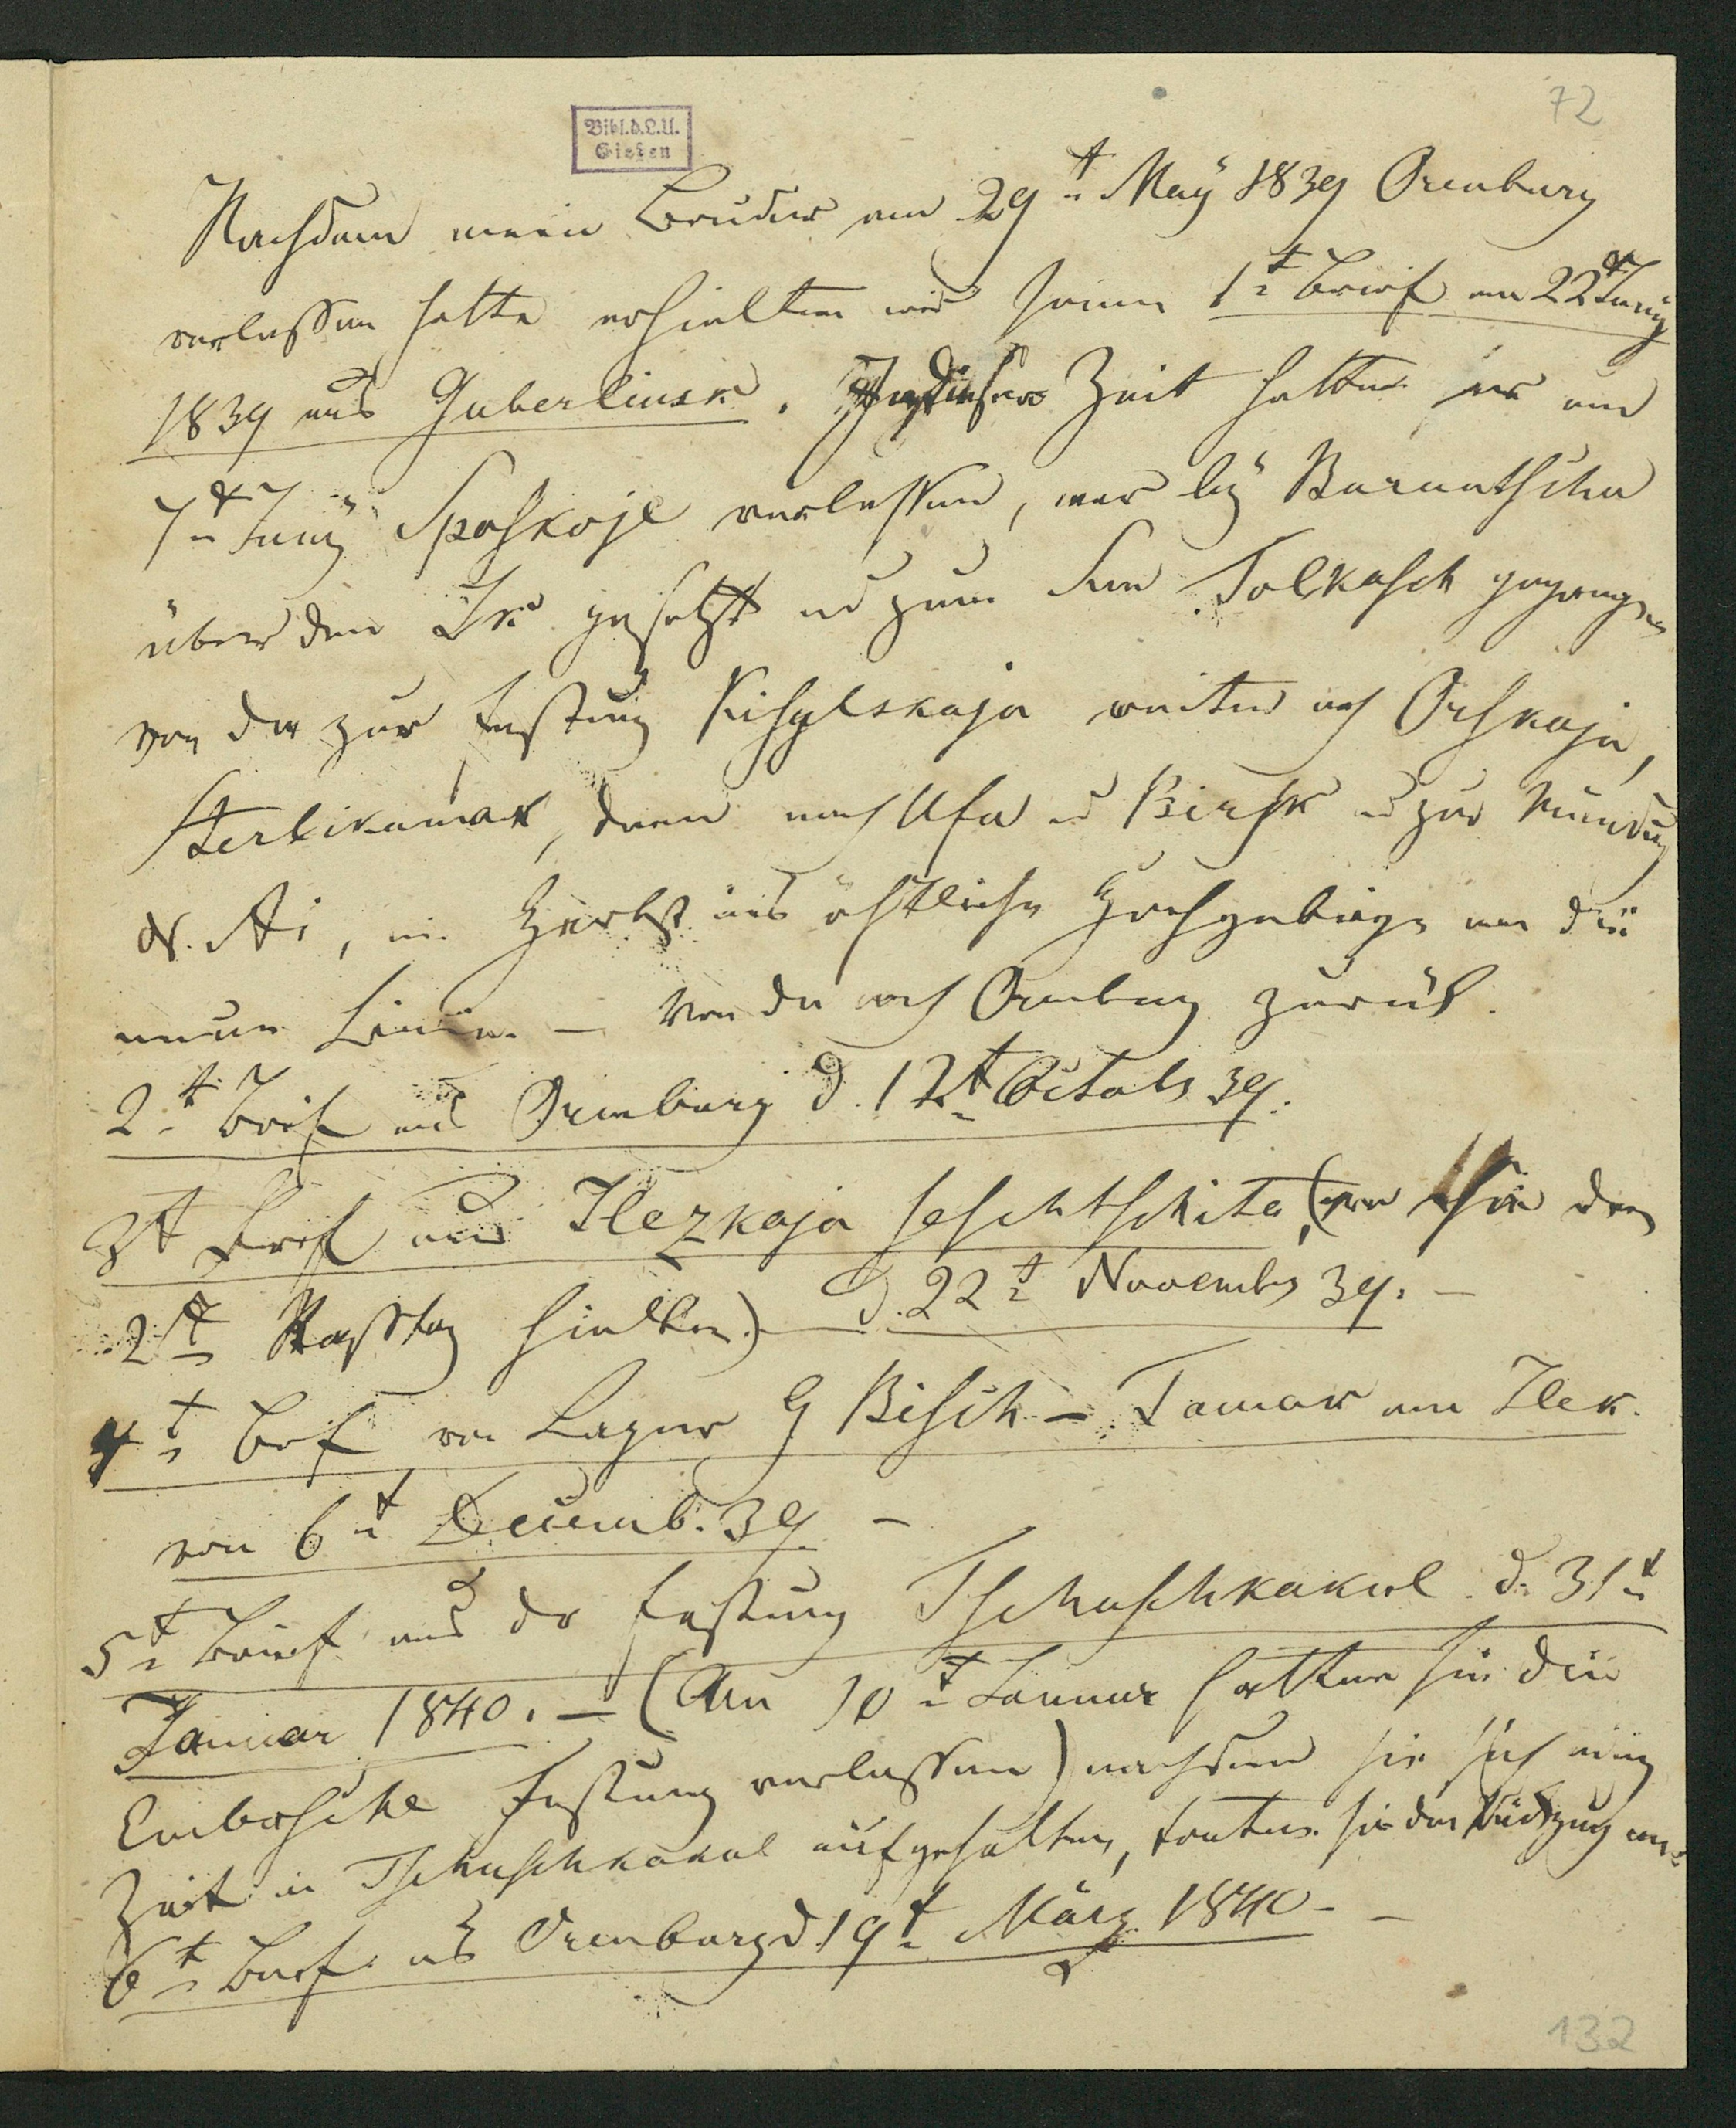 72
Bibl.d.L.U.
Gießen
Nachdem mein Bruder am 29t May 1839 Orenburg
verlassen hatte erhielten wir seinen 1t Brief am 22t Juny
1839 aus Guberlinsk. In dieser Zeit hatten sie am
7t Juny Spaskoje verlassen, war bey Baruatschu
über den Ik gesetzt u zum See Tolkasch gegangen
von da zur Festung Kisylskaja weiter nach Orskaja,
Sterlikamak, dann nach Ufa u Birsk u zur Mündung
d. Ai, im Herbst ins östliche Hochgebirge an die
neue Linie – Von da nach Orenburg zurük.
2t Brief aus Orenburg d. 12t Octobr 39.
3t Brief aus Ilezkaja saschtschita, (wo sie den
2t Rasttag hielten) d. 22t Novembr 39. –
4t Brief von Lager Bisch – Tamak am Ilek.
von 6t Decemb. 39 –
5t Brief aus der Festung Tschuschkakul d. 31t
Januar 1840. – (Am 10t Januar hatten sie die
Embasche Festung verlassen) nachdem sie sich einige
Zeit in Tschuschkakul aufgehalten, traten sie den Rückzug an.
6t Brief aus Orenburg d. 19t März 1840 – –
132